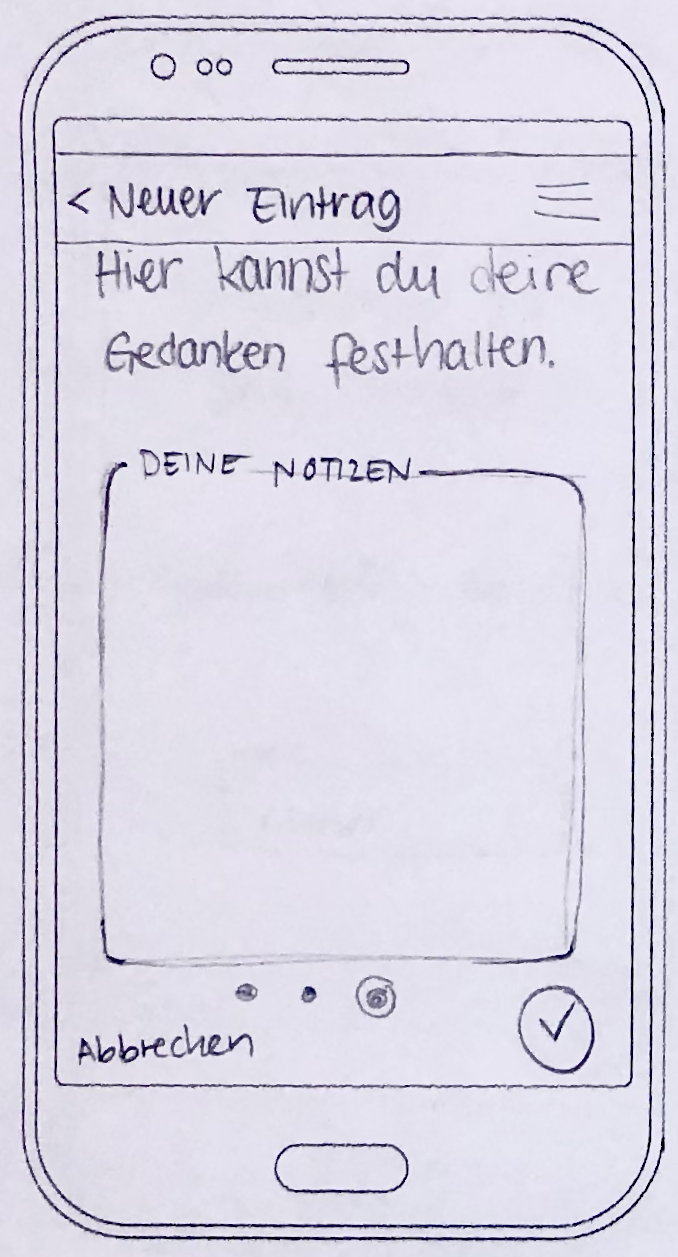 < Neuer Eintrag
Hier kannst du deine
Gedanken festhalten.
DEINE NOTIZEN
Abbrechen